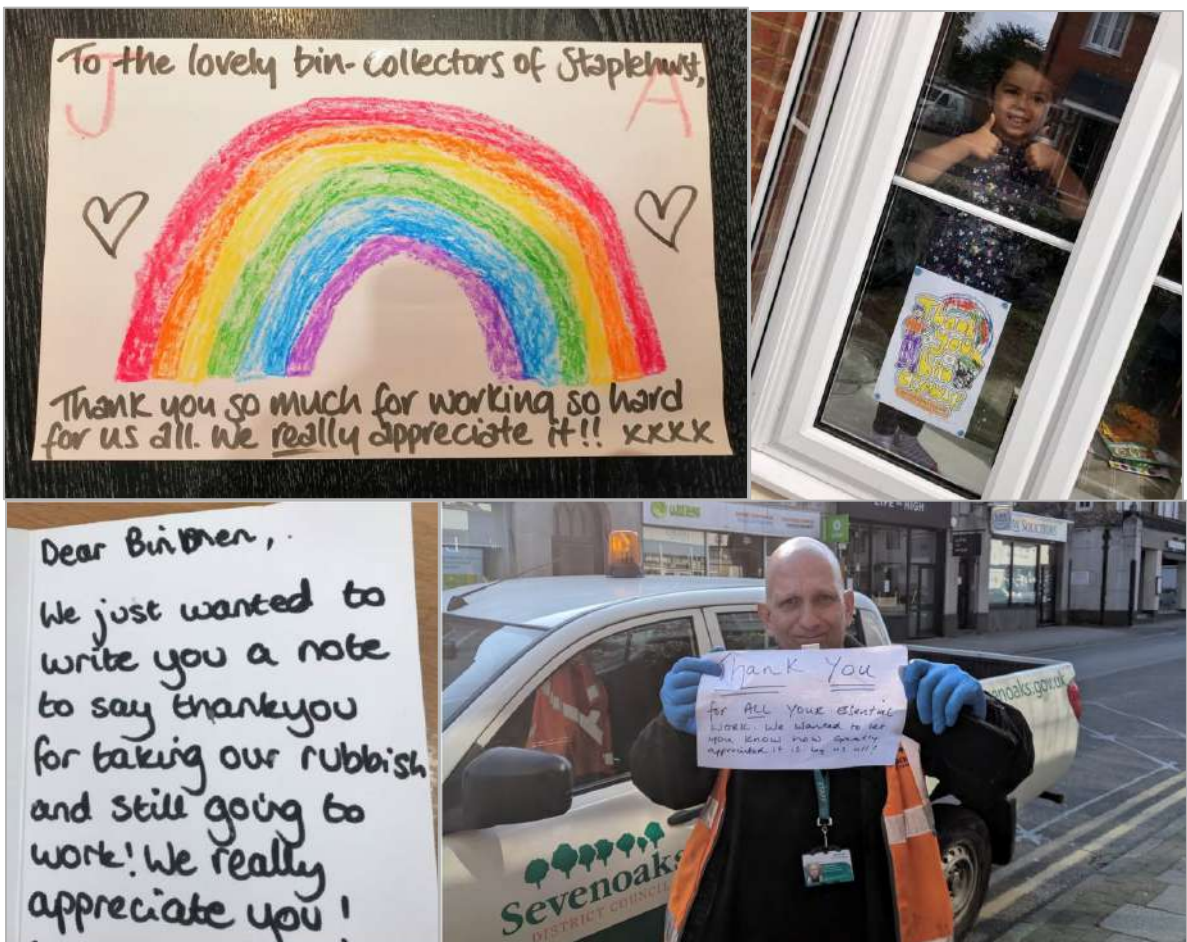 To the lovely bin-collectors of Staplehurst,
J A
Thank you so much for working so hard
for us all. We really appreciate it!! xxxx
Thank
you
bin
Dear Binmen,
We just wanted to
write you a note
to say thankyou
for taking our rubbish
and still going to
work! We really
appreciate you!
HIGH
SOLICITORS
Thank You
for ALL YOUR Essential
WORK. We wanted to let
you know how greatly
appreciated it is by us all!
enoaks.gov.uk
Sevenoaks
DISTRICT COUNCIL